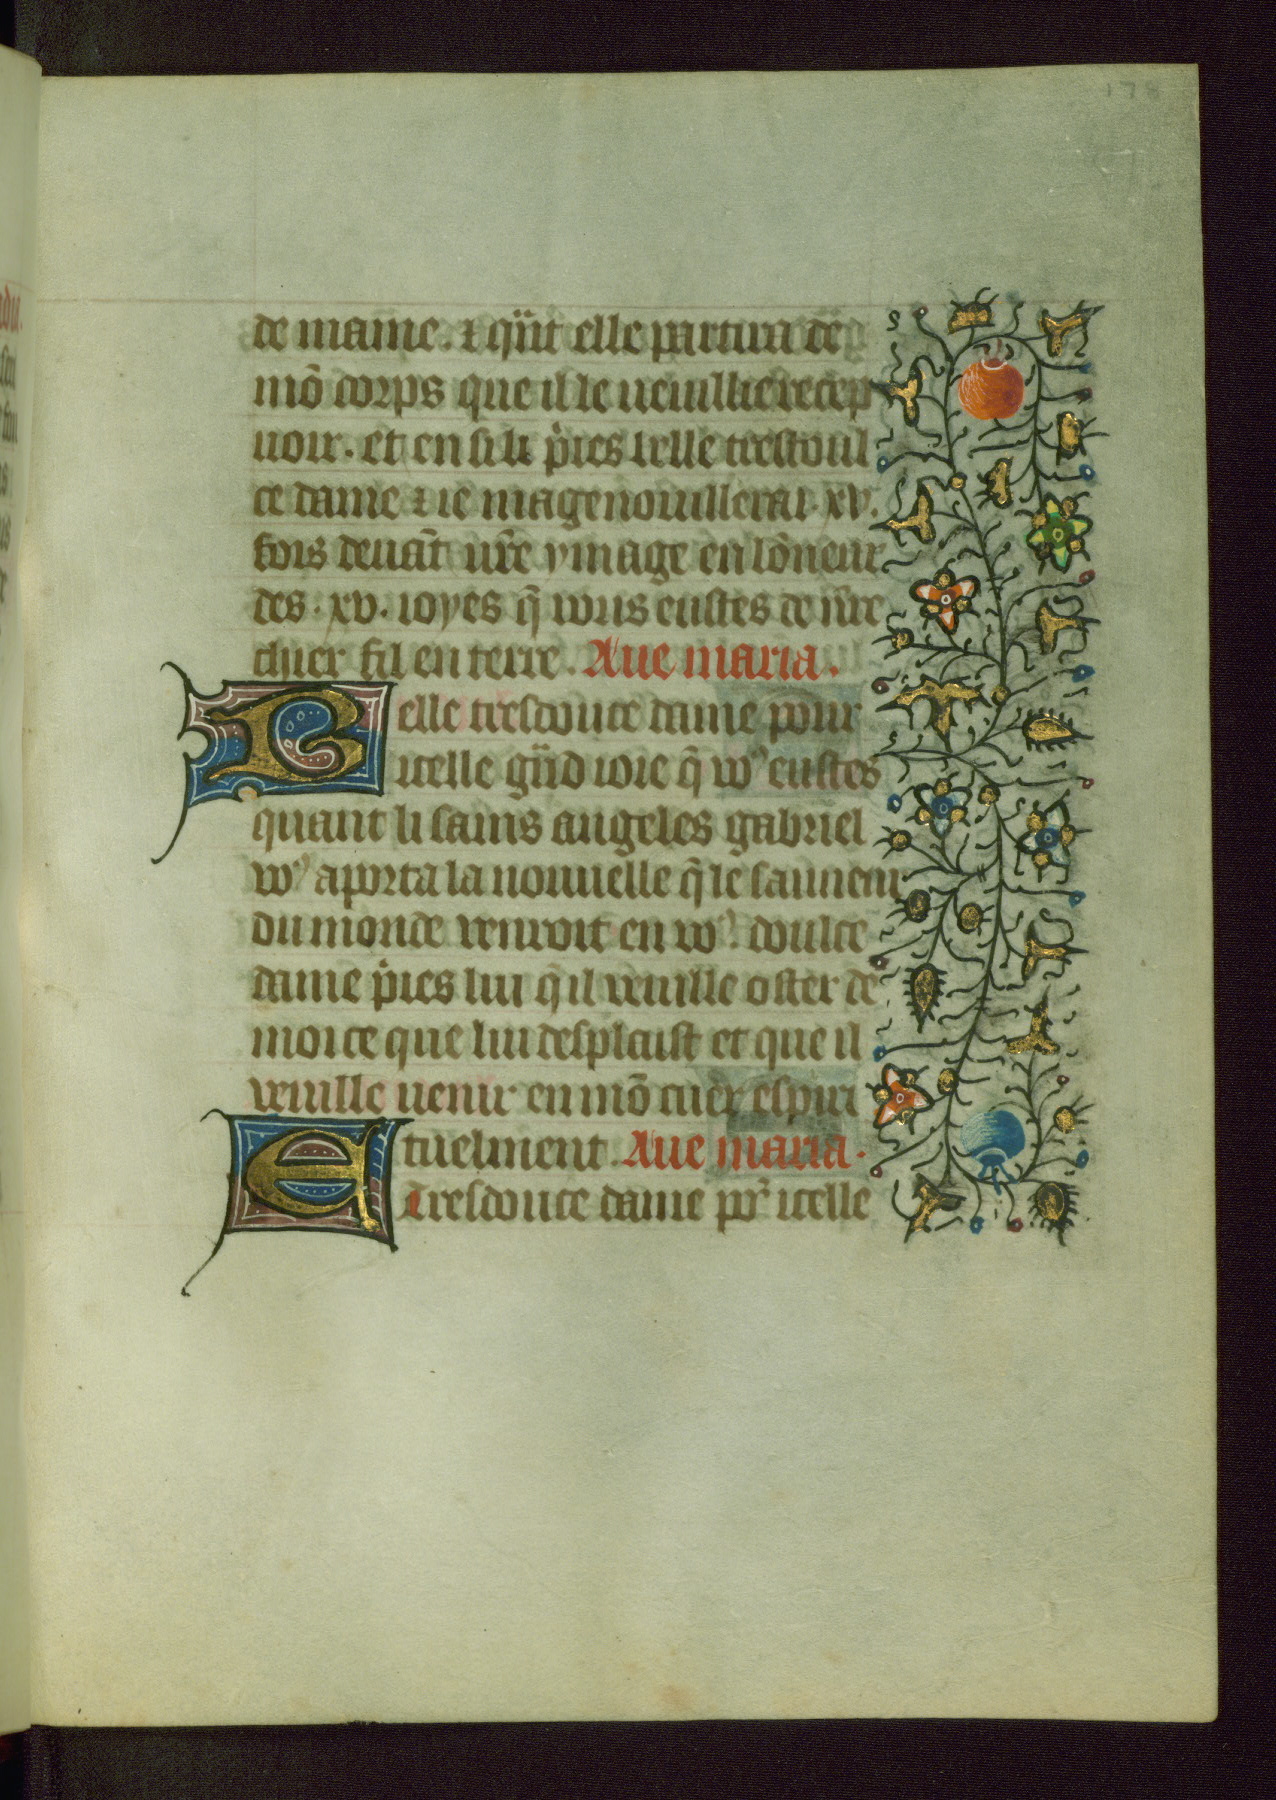 178
de mame. ⁊ qñt elle partira de
mõ corps que il le ueuillie recep
uoir. et en si li p̃ies lelle trestoul
ce dame ⁊ ie magenouillerai .xv.
fois deuãt ñre ymage en lõneur
des .xv. ioyes q̃ vous eustes de ñre
chier fil en terre. Aue maria.
Belle tresdouce dame pour
icelle gr̃nd ioie q̃ vo⁹ eustes
quant li sains angeles gabriel
vo⁹ aporta la nouuelle q̃ le sauueur
du monde venroit en vo⁹. doulce
dame p̃ies lui q̃ il veuille oster de
moi ce que lui desplaist et que il
veuille uenir en mõ cuer espiri
tuelment. Aue maria.
E tresdouce dame pr̃ icelle